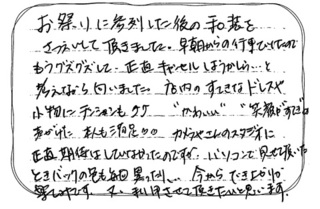 お祭りに参列した後の和装を
さつえいして頂きました。早朝からの行事でしたので
もうグズグズして、正直キャンセルしようかしら…と
考えながら伺いました。店内のすてきなドレスや
小物にテンションもアゲ "かわいい" "笑顔がすてき"
あげた 本人も満足♡♡ カメラやさんのスタジオに
正直期待はしていなかったのですが、パソコンで見せて頂いた
ときバックの色も毎回異ったり… 今からできあがりが
楽しみです。又、利用させて頂きたいと思います。